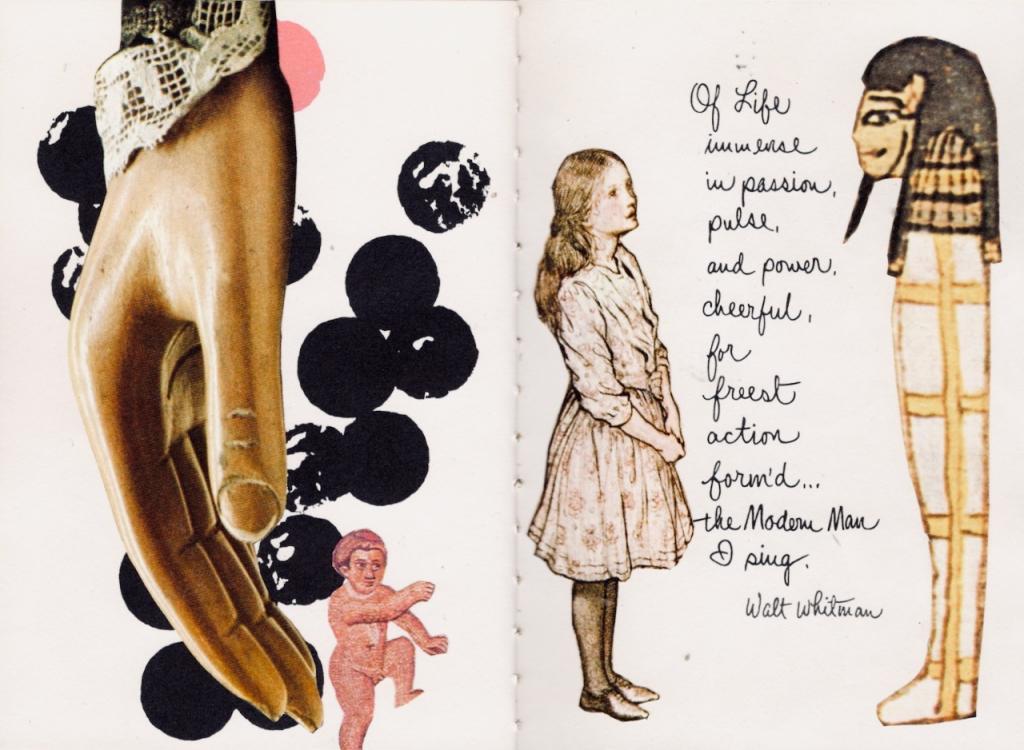 Of Life
immense
in passion,
pulse,
and power,
cheerful,
for
freest
action
form'd...
the Modern Man
I sing.
Walt Whitman